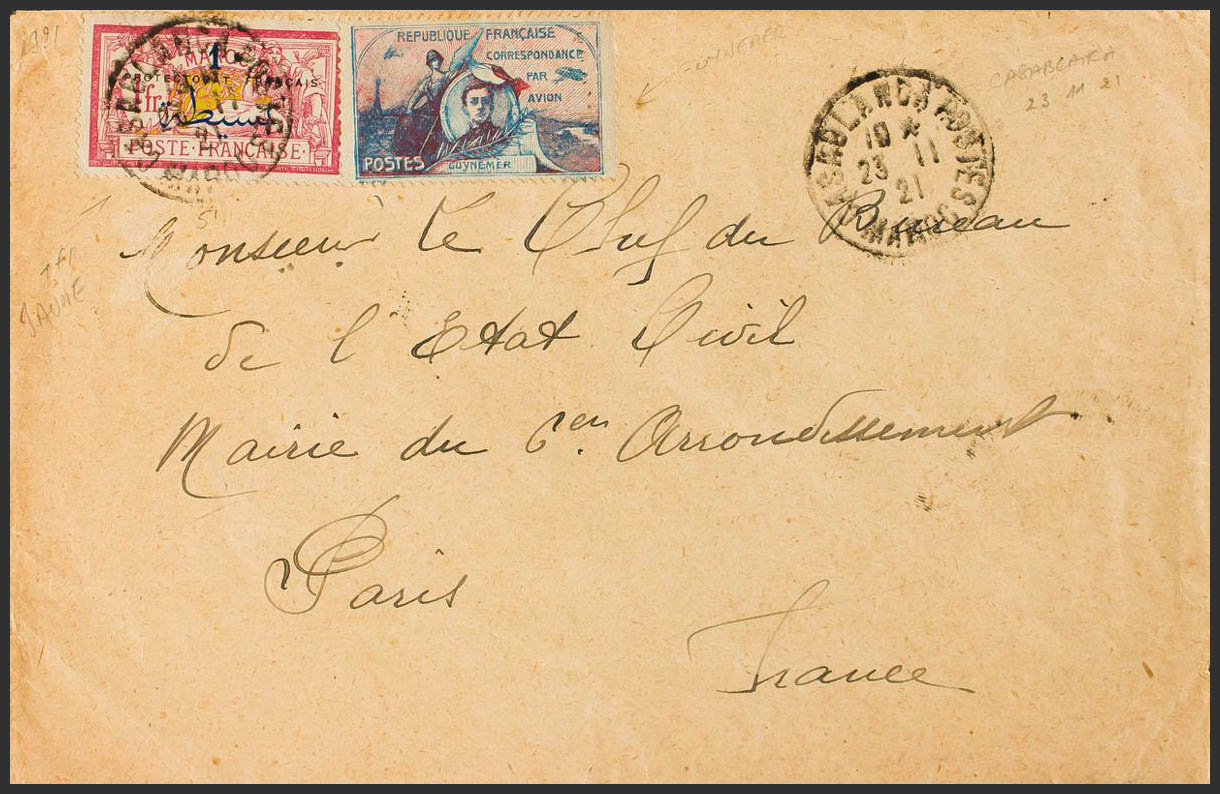 MAROC
1
PROTECTORAT FRANÇAIS
1 fr
POSTE FRANÇAISE
RÉPUBLIQUE FRANÇAISE
CORRESPONDANCE
PAR
AVION
POSTES
GUYNEMER
GUYNEMER
CASABLANCA
23 11 21
CASABLANCA POSTES
19 *
23 11
21
MAROC
JAUNE
Monsieur le Chef du Bureau
de l'Etat Civil
Mairie du 6en. Arrondissement
Paris
France